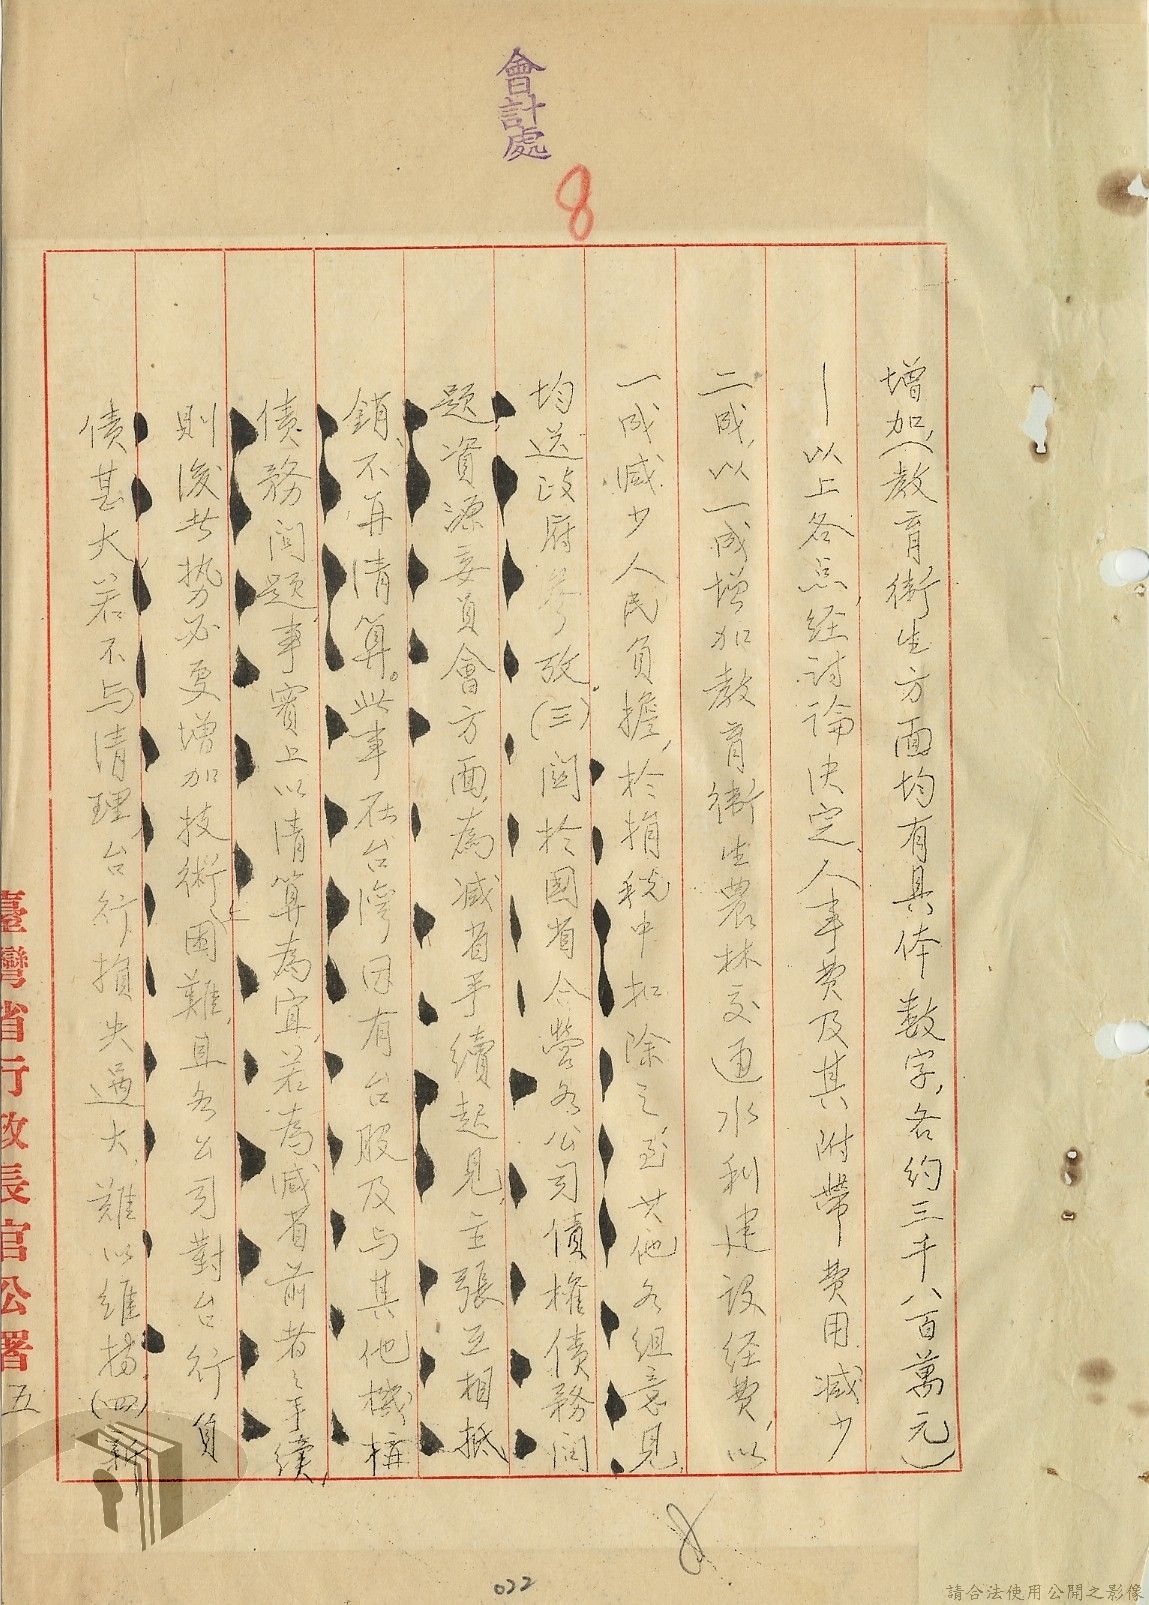 會計處
8
增加(教育衛生方面均有具体数字,各約三千八百萬元)
—以上各点,经討論决定,人事費及其附帶費用减少
二成,以一成增加教育衛生農林交通水利建設经費,以
一成减少人民負擔,於捐税中扣除之,至其他各组意見,
均送政府参攷,(三)関於國省合營各公司債權債務问
題,資源委員會方面,為减省手續起見,主張互相抵
銷,不再清算。此事在台灣因有台股及与其他機構
债務问題,事實上以清算為宜,若為减省前者之手续,
則後者势必更增加技術上困難,且各公司對台行負
债甚大,若不与清理,台行損失過大,難以維持,(四)新
臺灣省行政長官公署
五
8
022
請合法使用公開之影像